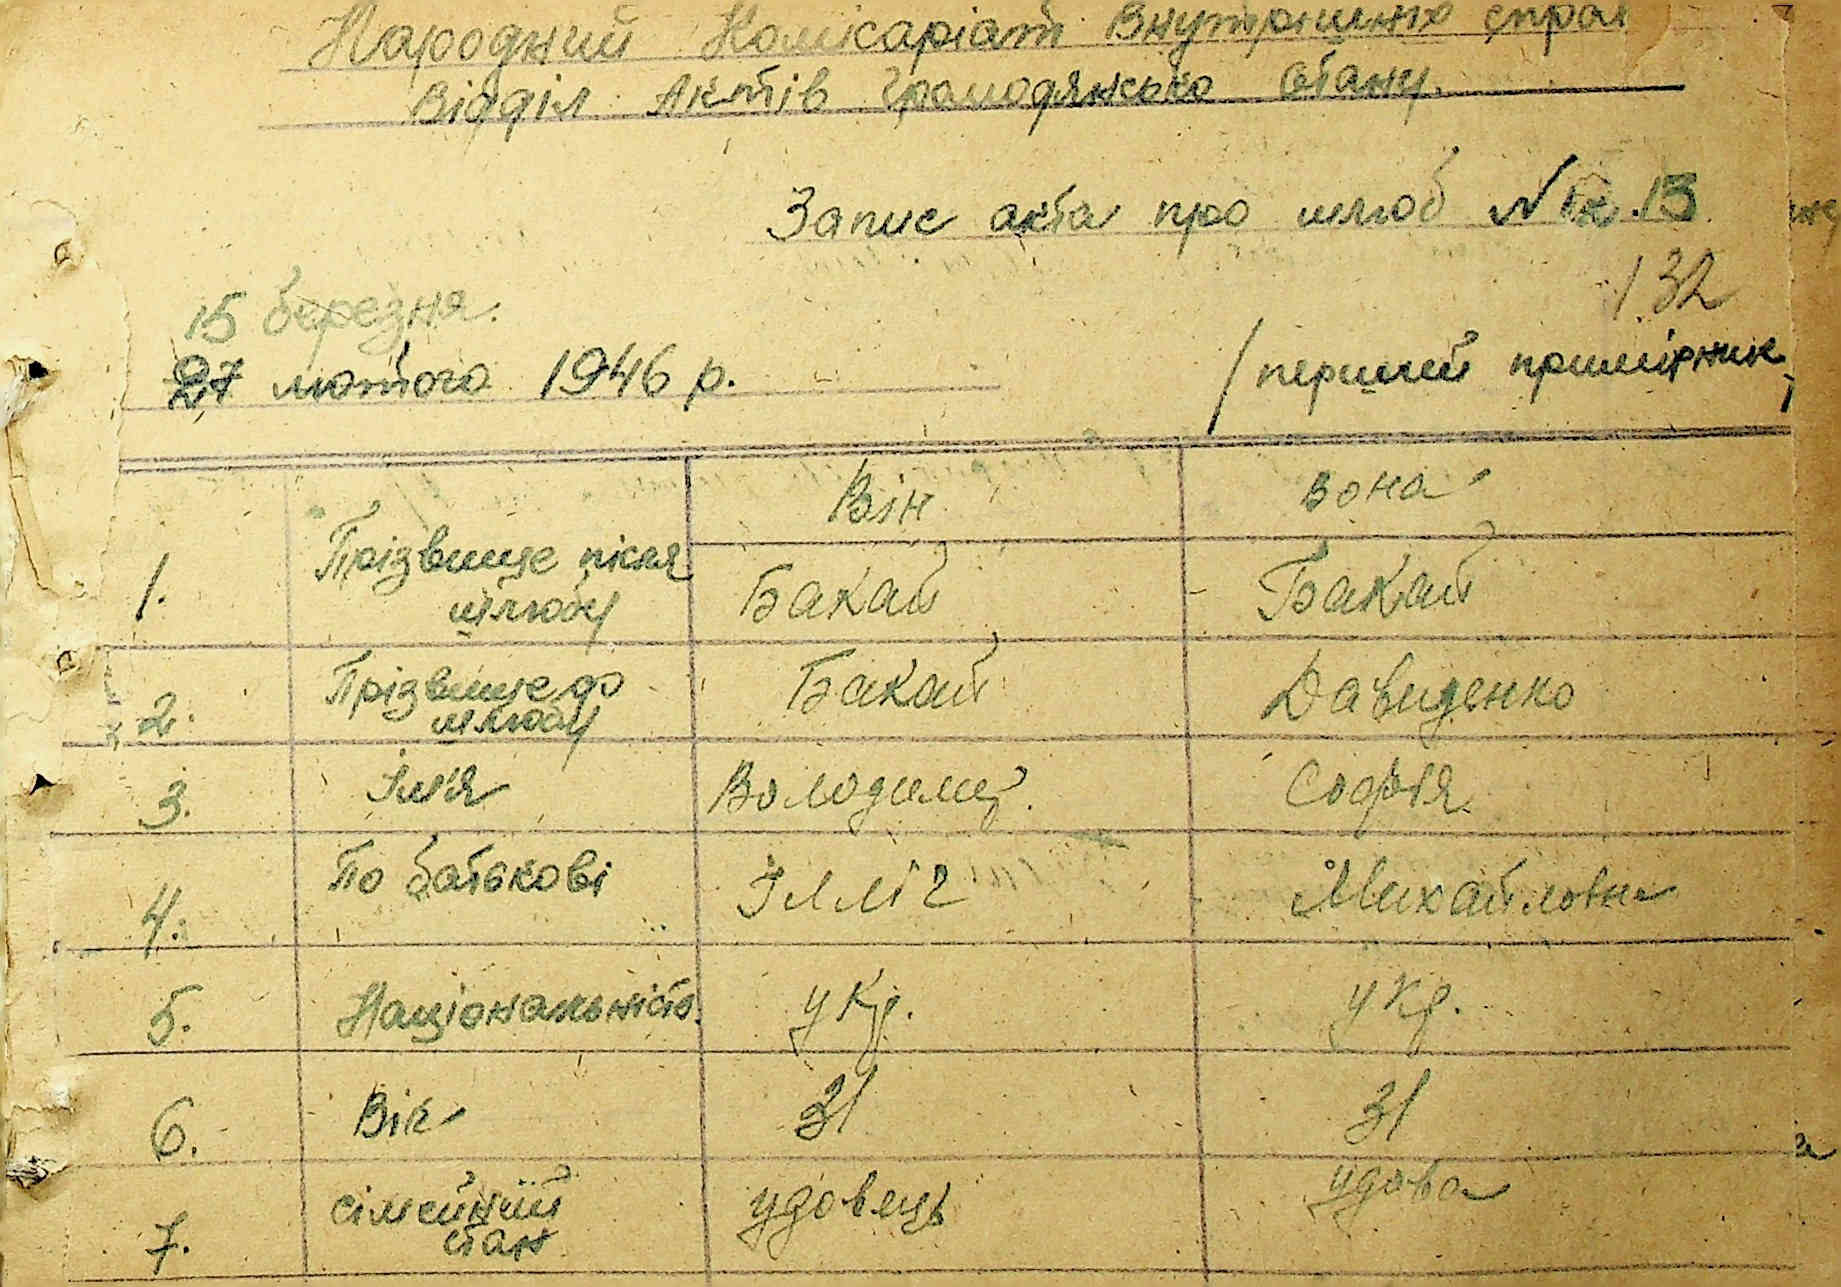 Народний Комісаріат Внутрішніх справ
Відділ Актів Громодянсько Стану.
Запис акта про шлюб № 13
132
15 березня.
27 лютого 1946 р.
/ перший примірник /
Він вона
1. Прізвище після шлюбу Бакай Бакай
2. Прізвище до шлюбу Бакай Давиденко
3. Ім'я Володимир. Софія.
4. По батькові Ілліч Михайловна
5. Національність укр. укр.
6. Вік 31 31
7. сімейний стан удовець удова